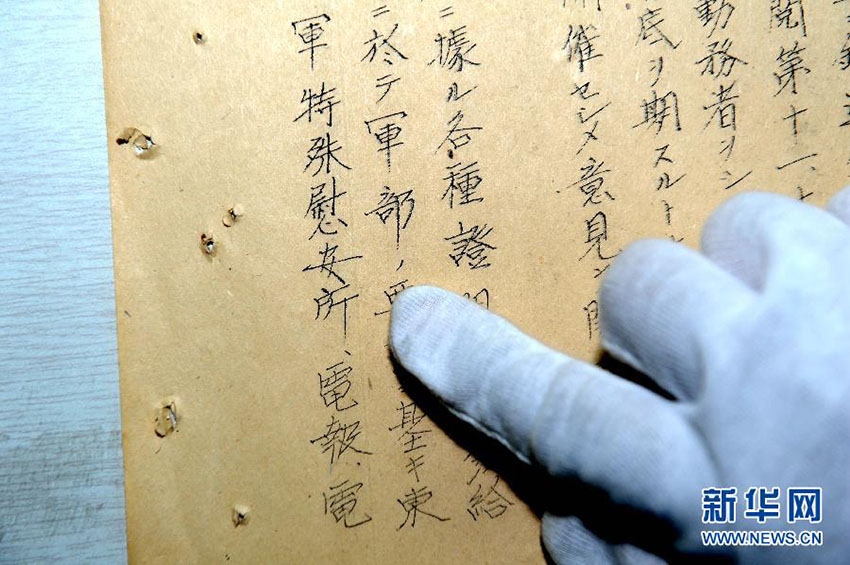 勤務者ヲシ
閲第十一、十
底ヲ期スルト
開催セシメ意見ヲ開
ニ據ル各種證明
給
ニ於テ軍部ノ要
基キ東
軍特殊慰安所、電報、電
新华网
WWW.NEWS.CN